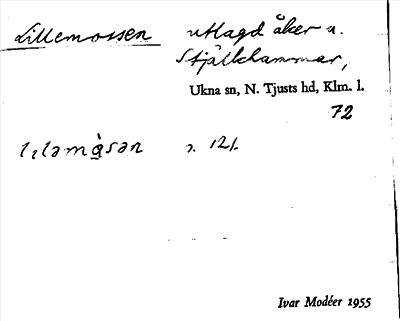 Lillemossen utlagd åker u.
Stjälkhammar,
Ukna sn, N. Tjusts hd, Klm. l.
72
Ivar Modéer 1955